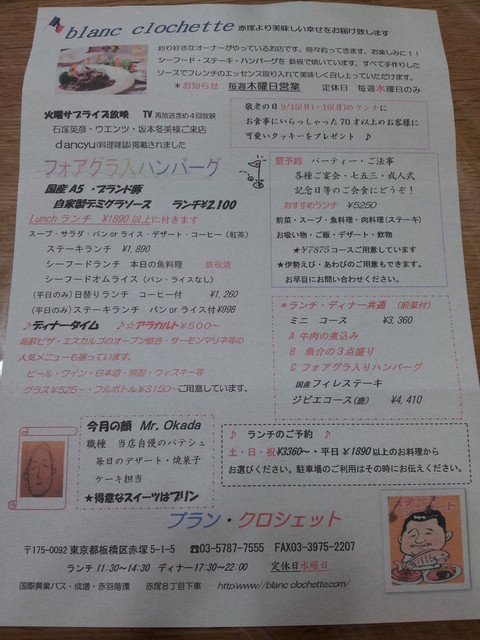 blanc clochette 赤塚より美味しい幸せをお届け致します
釣り好きなオーナーがやっているお店です。時々釣ってきます。お楽しみに！！
シーフード・ステーキ・ハンバーグを 鉄板で焼いています。すべて手作りした
ソースでフレンチのエッセンス取り入れて美味しく召し上っていただけます。
＊お知らせ 毎週木曜日営業 定休日 毎週水曜日のみ
火曜サプライズ放映 TV 再放送含め4回放映
石塚英彦・ウエンツ・坂本冬美様ご来店
dancyu(料理雑誌)掲載されました
敬老の日 9/15(日)・16(月)のランチに
お食事にいらっしゃった 70才以上のお客様に
可愛いクッキーをプレゼント ♪
フォアグラ入ハンバーグ
国産 A5 ・ブランド豚
自家製デミグラソース ランチ¥2.100
Lunch ランチ ¥1890以上に付きます
スープ・サラダ・パン or ライス・デザート・コーヒー (紅茶)
ステーキランチ ¥1,890
シーフードランチ 本日の魚料理 鉄板焼
シーフードオムライス (パン・ライスなし)
(平日のみ)日替りランチ コーヒー付 ¥1,260
(平日のみ)ステーキランチ パン or ライス付¥998
要予約 パーティー・ご法事
各種ご宴会・七五三・成人式
記念日等のご会食にどうぞ！
おすすめランチ ¥5250
前菜・スープ・魚料理・肉料理(ステーキ)
お吸い物・ご飯・デザート・飲物
★¥7875コースご用意しています
★伊勢えび・あわびのご用意もできます。
お早目にお問い合わせください。
♪ディナータイム ♪☆アラカルト¥500～
海鮮ピザ・エスカルゴのオーブン焼き・サーモンマリネ等の
人気メニューも揃っています。
ビール・ワイン・日本酒・焼酎・ウィスキー等
グラス¥525～・フルボトル¥3150～ご用意しています。
＊ランチ・ディナー共通 (前菜付)
ミニ コース ¥3,360
A 牛肉の煮込み
B 魚介の3点盛り
C フォアグラ入りハンバーグ
国産フィレステーキ
ジビエコース(鹿) ¥4,410
今月の顔 Mr. Okada
職種 当店自慢のパテシェ
毎日のデザート・焼菓子
ケーキ担当
★得意なスイーツはプリン
♪ ランチのご予約 ♪
土・日・祝¥3360～・平日¥1890以上のお料理から
お選びください。駐車場のご利用はその時にお伝えください。
ブラン・クロシェット
〒175-0092 東京都板橋区赤塚 5-1-5 ☎03-5787-7555 FAX03-3975-2207
ランチ 11:30～14:30 ディナー17:30～22:00 定休日水曜日
国際興業バス・成増・赤羽循環 赤塚8丁目下車 http:www//blanc clochette.com/